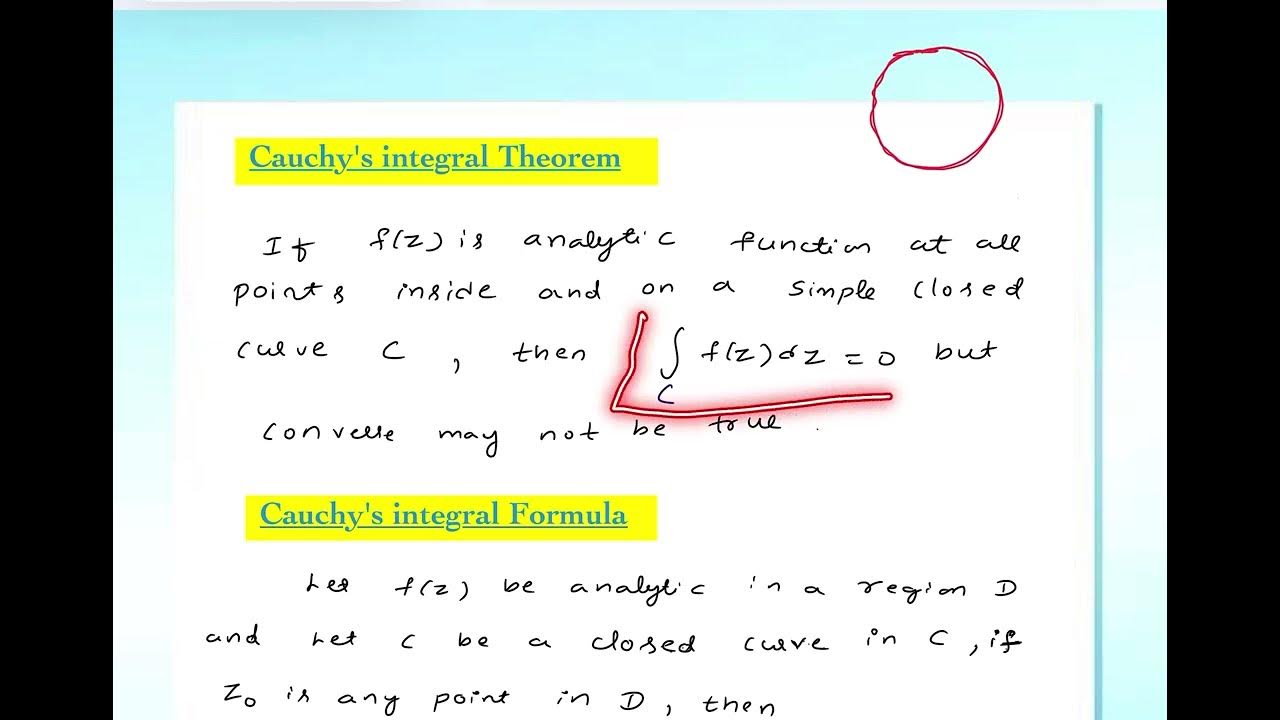 Cauchy's integral Theorem
If f(z) is analytic function at all
points inside and on a simple closed
curve C, then ∫ f(z) dz = 0 but
C
converse may not be true.
Cauchy's integral Formula
Let f(z) be analytic in a region D
and let C be a closed curve in C, if
z₀ is any point in D, then